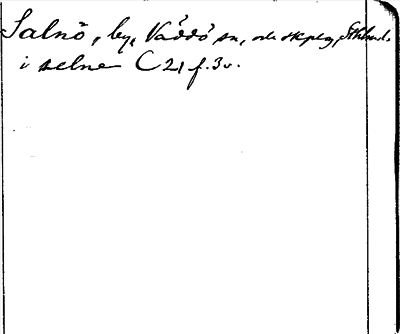 Salnö, by, Väddö sn, o. skpslag, Sthlms l.
i selne C 21 f. 3v.